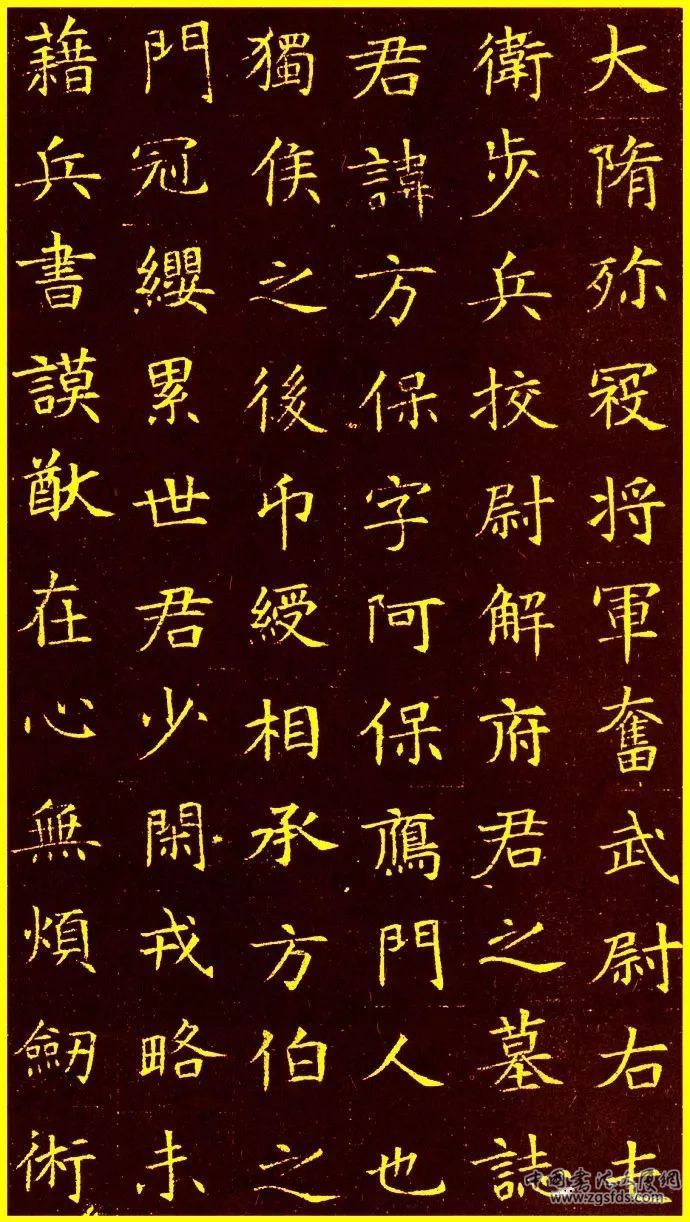 大隋殄寇将軍奮武尉右
衛步兵挍尉解府君之墓誌
君諱方保字阿保鴈門人也
獨侯之後币綬相承方伯之
門冠纓累世君少閑戎略未
藉兵書謨猷在心無煩劒術
www.zgsfds.com